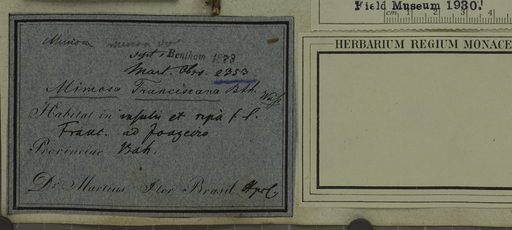 Field Museum 1930.
cm 1 2 3 4
HERBARIUM REGIUM MONACE
Mimosa
Bentham
Mart. Obs. 2353
Mimosa Franciscana Bth.
Habitat in insulis et ripa fl.
Franc. ad Joazeiro
Provinciae Bah.
Dr. Martius Iter Brasil